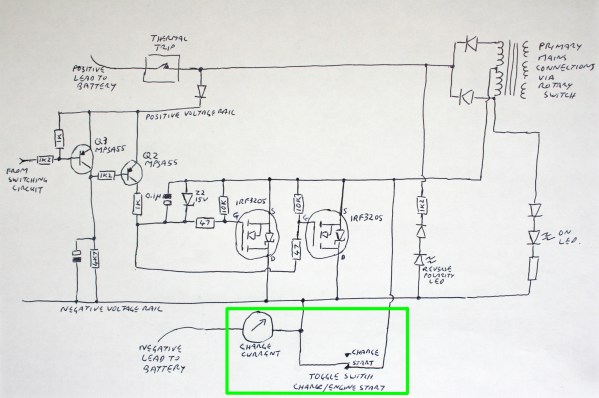 THERMAL
TRIP
POSITIVE
LEAD TO
BATTERY
PRIMARY
MAINS
CONNECTIONS
VIA
ROTARY
SWITCH
POSITIVE VOLTAGE RAIL
1K
Q3
MPSA55
Q2
MPSA55
1K2
FROM
SWITCHING
CIRCUIT
1K2
1K
0.1µ
Z2
15V
10K
47
G
S
D
IRF3205
10K
47
G
S
D
IRF3205
1K2
REVERSE
POLARITY
LED
ON
LED.
4K7
NEGATIVE VOLTAGE RAIL
NEGATIVE
LEAD TO
BATTERY
CHARGE
CURRENT
CHARGE
START
TOGGLE SWITCH
CHARGE/ENGINE START